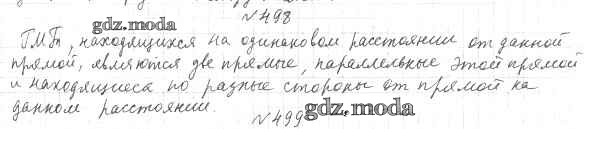 №498
gdz.moda
ГМТ, находящихся на одинаковом расстоянии от данной
прямой, являются две прямые, параллельные этой прямой
и находящиеся по разные стороны от прямой на
данном расстоянии.
№499
gdz.moda